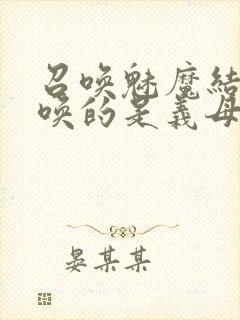 召唤魅魔结
唤的是義母
晏某某